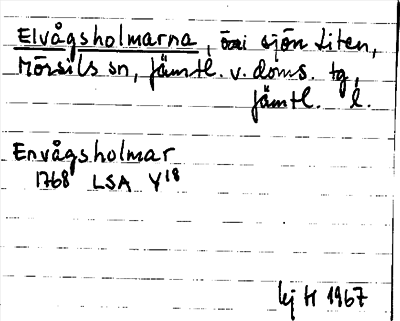 Elvågsholmarna, öar i sjön Liten,
Mörsils sn, Jämtl. v. doms. tg,
Jämtl. l.
Envågsholmar
1768 LSA Y¹⁸
1967